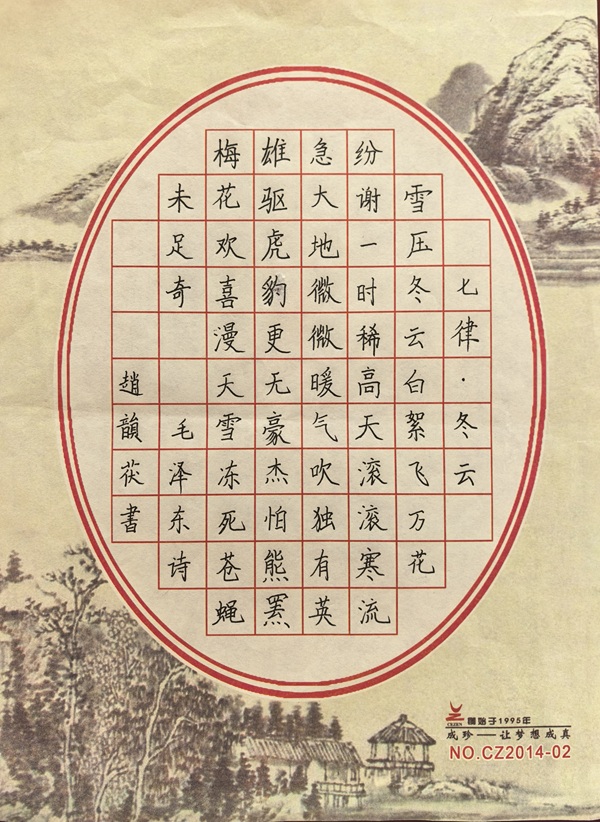 七律·冬云
雪压冬云白絮飞万花
纷谢一时稀高天滚滚寒流
急大地微微暖气吹独有英
雄驱虎豹更无豪杰怕熊罴
梅花欢喜漫天雪冻死苍蝇
未足奇 毛泽东诗
趙韻茯書
创始于1995年
成珍——让梦想成真
NO.CZ2014-02